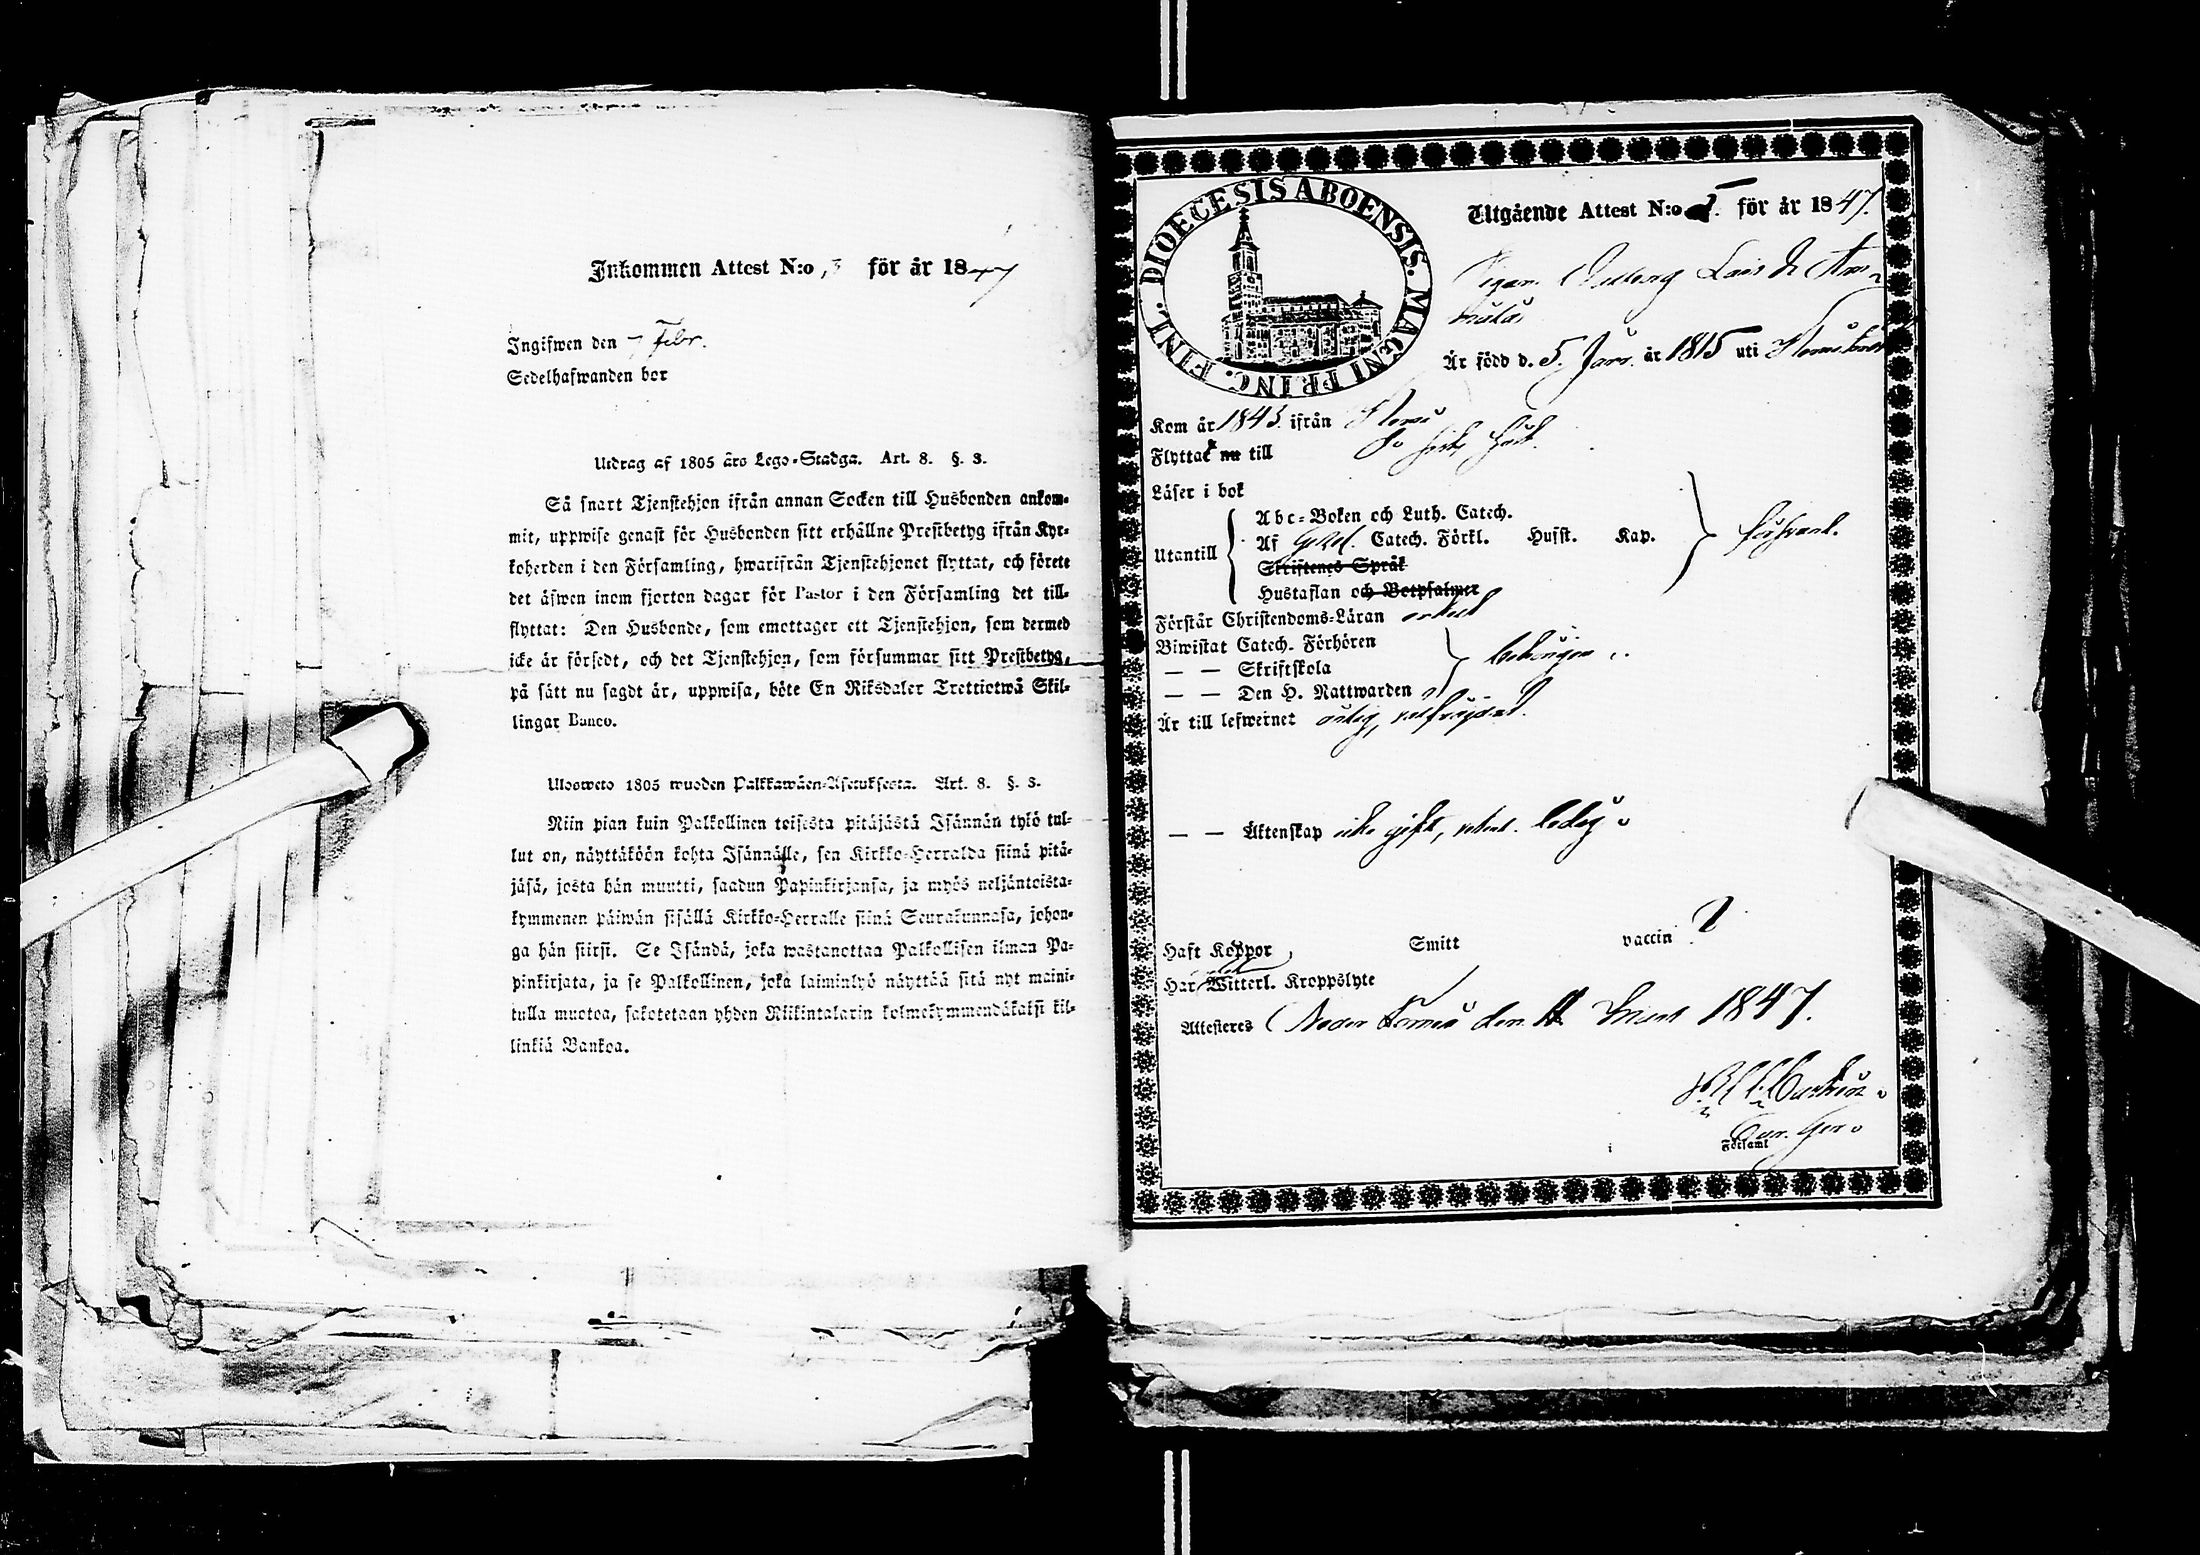 Inkommen Attest N:o 3 för år 1847
Ingifwen den 7 Febr.
Sedelhafwanden bor
Utdrag af 1805 års Lego-Stadga. Art. 8. §. 3.
Så snart Tjenstehjon ifrån annan Socken till Husbonden ankom-
mit, uppwise genast för Husbonden sitt erhållne Prestbetyg ifrån Kyr-
koherden i den Församling, hwarifrån Tjenstehjonet flyttat, och förete
det äfwen inom fjorton dagar för Pastor i den Församling det till-
flyttat: Den Husbonde, som emottager ett Tjenstehjon, som dermed
icke är försedt, och det Tjenstehjon, som försummar sitt Prestbetyg,
på sätt nu sagdt är, uppwisa, böte En Riksdaler Trettiotwå Skil-
lingar Banco.
Ulosweto 1805 wuoden Palkkawäen-Asetuksesta. Art. 8. §. 3.
Niin pian kuin Palkollinen toisesta pitäjästä Isännän tykö tul-
lut on, näyttäköön kohta Isännälle, sen Kirkko-Herralda siinä pitä-
jäsä, josta hän muutti, saadun Papinkirjansa, ja myös neljäntoista-
kymmenen päiwän sisällä Kirkko-Herralle siinä Seurakunnasa, johon-
ga hän siirsi. Se Isändä, joka wastanottaa Palkollisen ilman Pa-
pinkirjata, ja se Palkollinen, joka laiminlyö näyttää sitä nyt maini-
tulla muotoa, sakotetaan yhden Riikintalarin kolmekymmendäkaksi kil-
linkiä Bankoa.
DIOECESIS ABOENSIS. MAGNI PRINC. FINL.
Utgående Attest N:o för år 1847.
Är född d. 5. Jan. år 1815 uti
Kom år 1843 ifrån
Flyttat nu till
Läser i bok
Utantill
Abc-Boken och Luth. Catech.
Af Catech. Förkl. Husst. Kap. försvarl.
Skriftenes Språk
Hustaflan och Botpsalmer
Förstår Christendoms-Läran enkelt
Biwistat Catech. Förhören
— — Skriftskola
— — Den H. Nattwarden
behörigen
Är till lefwernet ärlig, välfräjdad.
— — Äktenskap icke gift, utan ledig
Haft Koppor Smitt vaccin ?
Har Witterl. Kroppslyte
Attesteras Neder Torneå den 1847.
Församl